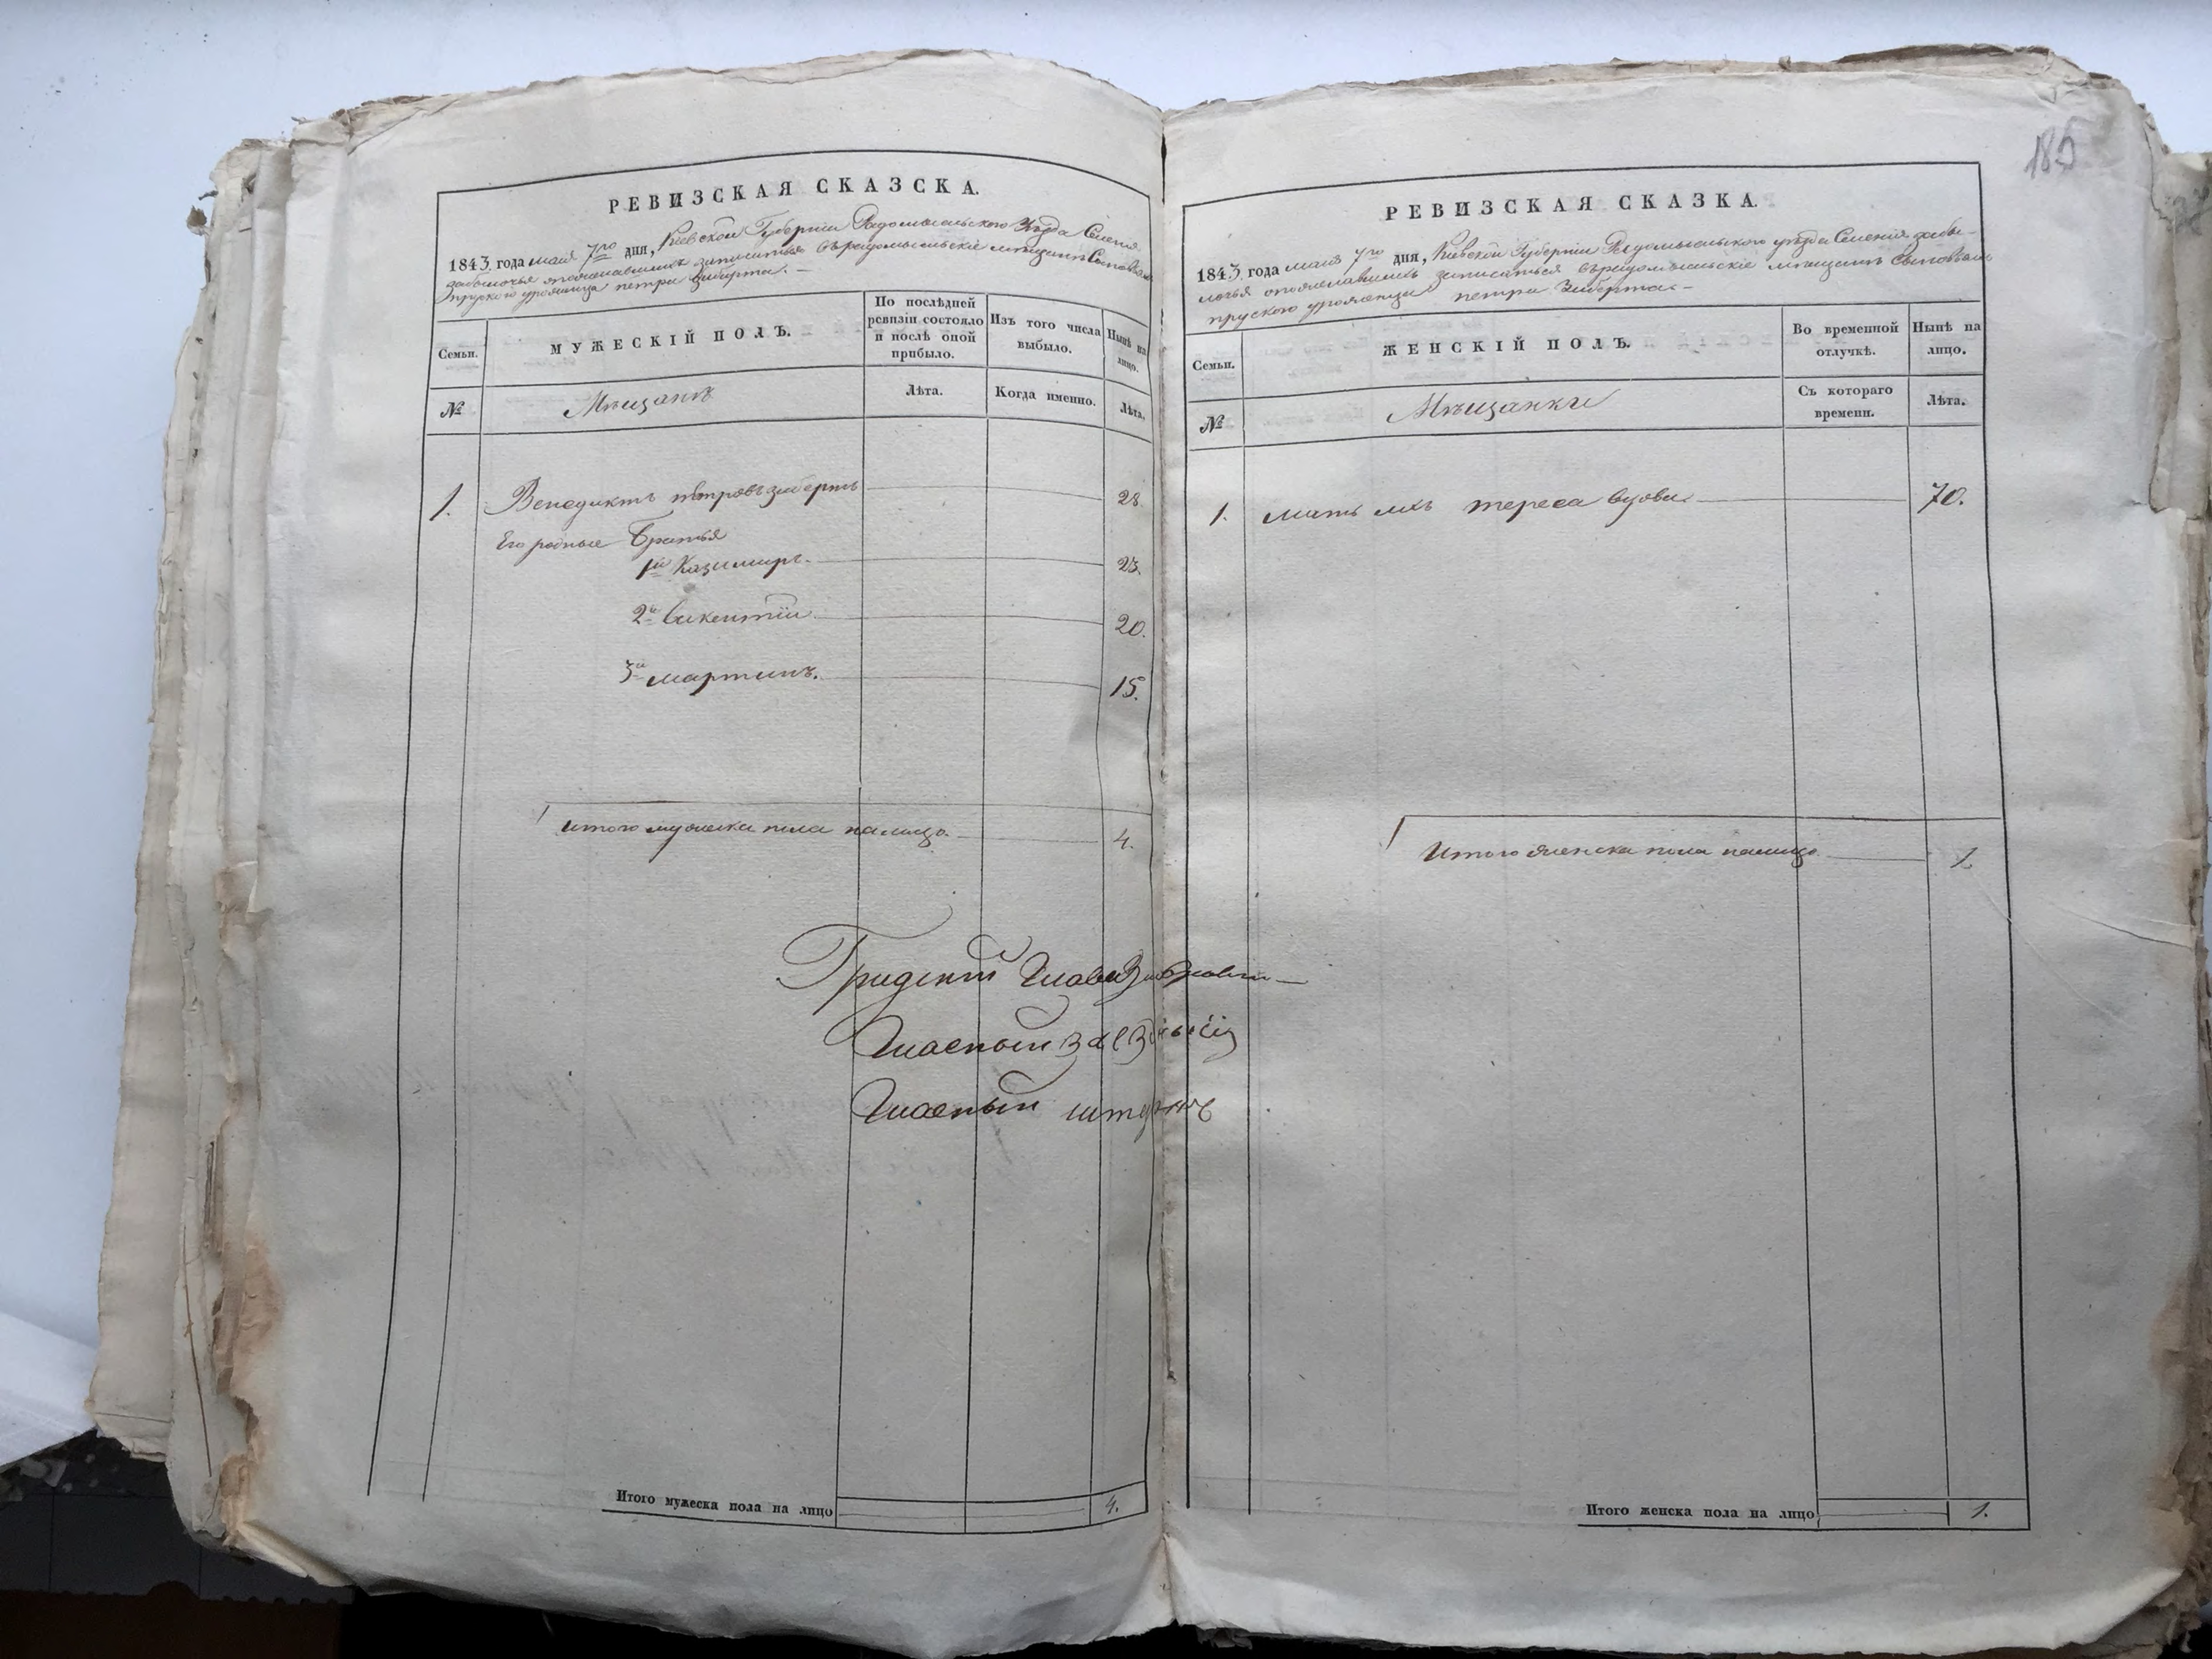 185
РЕВИЗСКАЯ СКАЗСКА.
1843 года мая 7го дня, Кіевской Губерніи Радомысльского Уѣзда Селенія
забылочья пожелавшихъ записаться въ радомысльскіе мещане Сыновьевъ
пруского уроженца петра Зиберта. —
Семьи.
МУЖЕСКІЙ ПОЛЪ.
По послѣдней ревизіи состояло и послѣ оной прибыло.
Изъ того числа выбыло.
Нынѣ на лицо.
№
Мѣщанъ
Лѣта.
Когда именно.
Лѣта.
1. Венедиктъ петровъ зибертъ 28
Его родные братья
1й Казимиръ. 23.
2й викентій 20.
3й мартинъ. 15.
итого мужеска пола налицо 4.
Градскій Глава
Гласный
Гласный
Итого мужеска пола на лицо 4.
РЕВИЗСКАЯ СКАЗКА.
1843 года мая 7го дня, Кіевской Губерніи Радомысльского уѣзда Селенія забы-
лочья пожелавшихъ записаться въ радомысльскіе мещане сыновьевъ
пруского уроженца петра Зиберта. —
Семьи.
ЖЕНСКІЙ ПОЛЪ.
Во временной отлучкѣ.
Нынѣ на лицо.
№
Мѣщанки
Съ котораго времени.
Лѣта.
1. мать ихъ тереса вдова 70.
Итого женска пола налицо 1.
Итого женска пола на лицо 1.